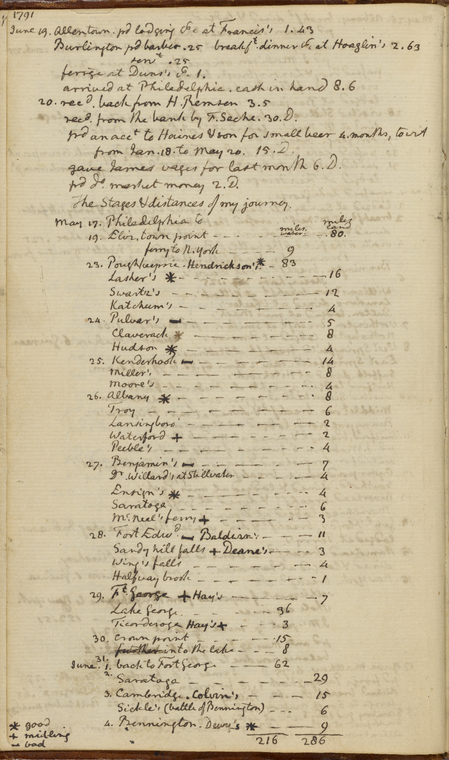 1791
June 19. Allentown. pd lodging &c at Francis's 1.43
Burlington pd barber .25 breakft dinner &c at Hoaglin's 2.63
servt .25
ferrge at Dunn's &c. 1.
arrived at Philadelphia. cash in hand 8.6
20. recd. back from H. Remsen 3.5
recd. from the bank by F. Seche. 30.D.
pd an acct to Haines & son for small beer 4. months, to wit
from Jan. 18. to May 20. 15.D.
gave James wages for last month 6.D.
pd do. market money 2.D.
The Stages & distances of my journey
miles water miles land
May 17. Philadelphia to
19. Eliz. town point 80.
ferry to N. York 9
23. Poughkeepsie. Hendrickson's * 83
Lasher's * 16
Swartz's 12
Katchum's 4
24. Pulver's - 5
Claverack * 8
Hudson * 4
25. Kenderhook - 14
Miller's 8
Moore's 4
26. Albany * 8
Troy 6
Lansingboro 2
Waterford + 2
Peeble's 4
27. Benjamin's - 7
Dr. Willard's at Stillwater 4
Ensign's * 4
Saratoga 6
Mc.Neel's ferry + 3
28. Fort Edwd - Baldwin's 11
Sandy hill falls + Deane's 3
Wing's falls 4
Halfway brook 1
29. Ft. George + Hay's 7
Lake George 36
Ticonderoga Hay's + 3
30. Crown point 15
into the lake 8
31.
June. 1. back to Fort George 62
2. Saratoga 29
3. Cambridge. Colvin's 15
Sickle's (battle of Bennington) 6
4. Bennington. Dewy's * 9
216 286
* good
+ midling
- bad